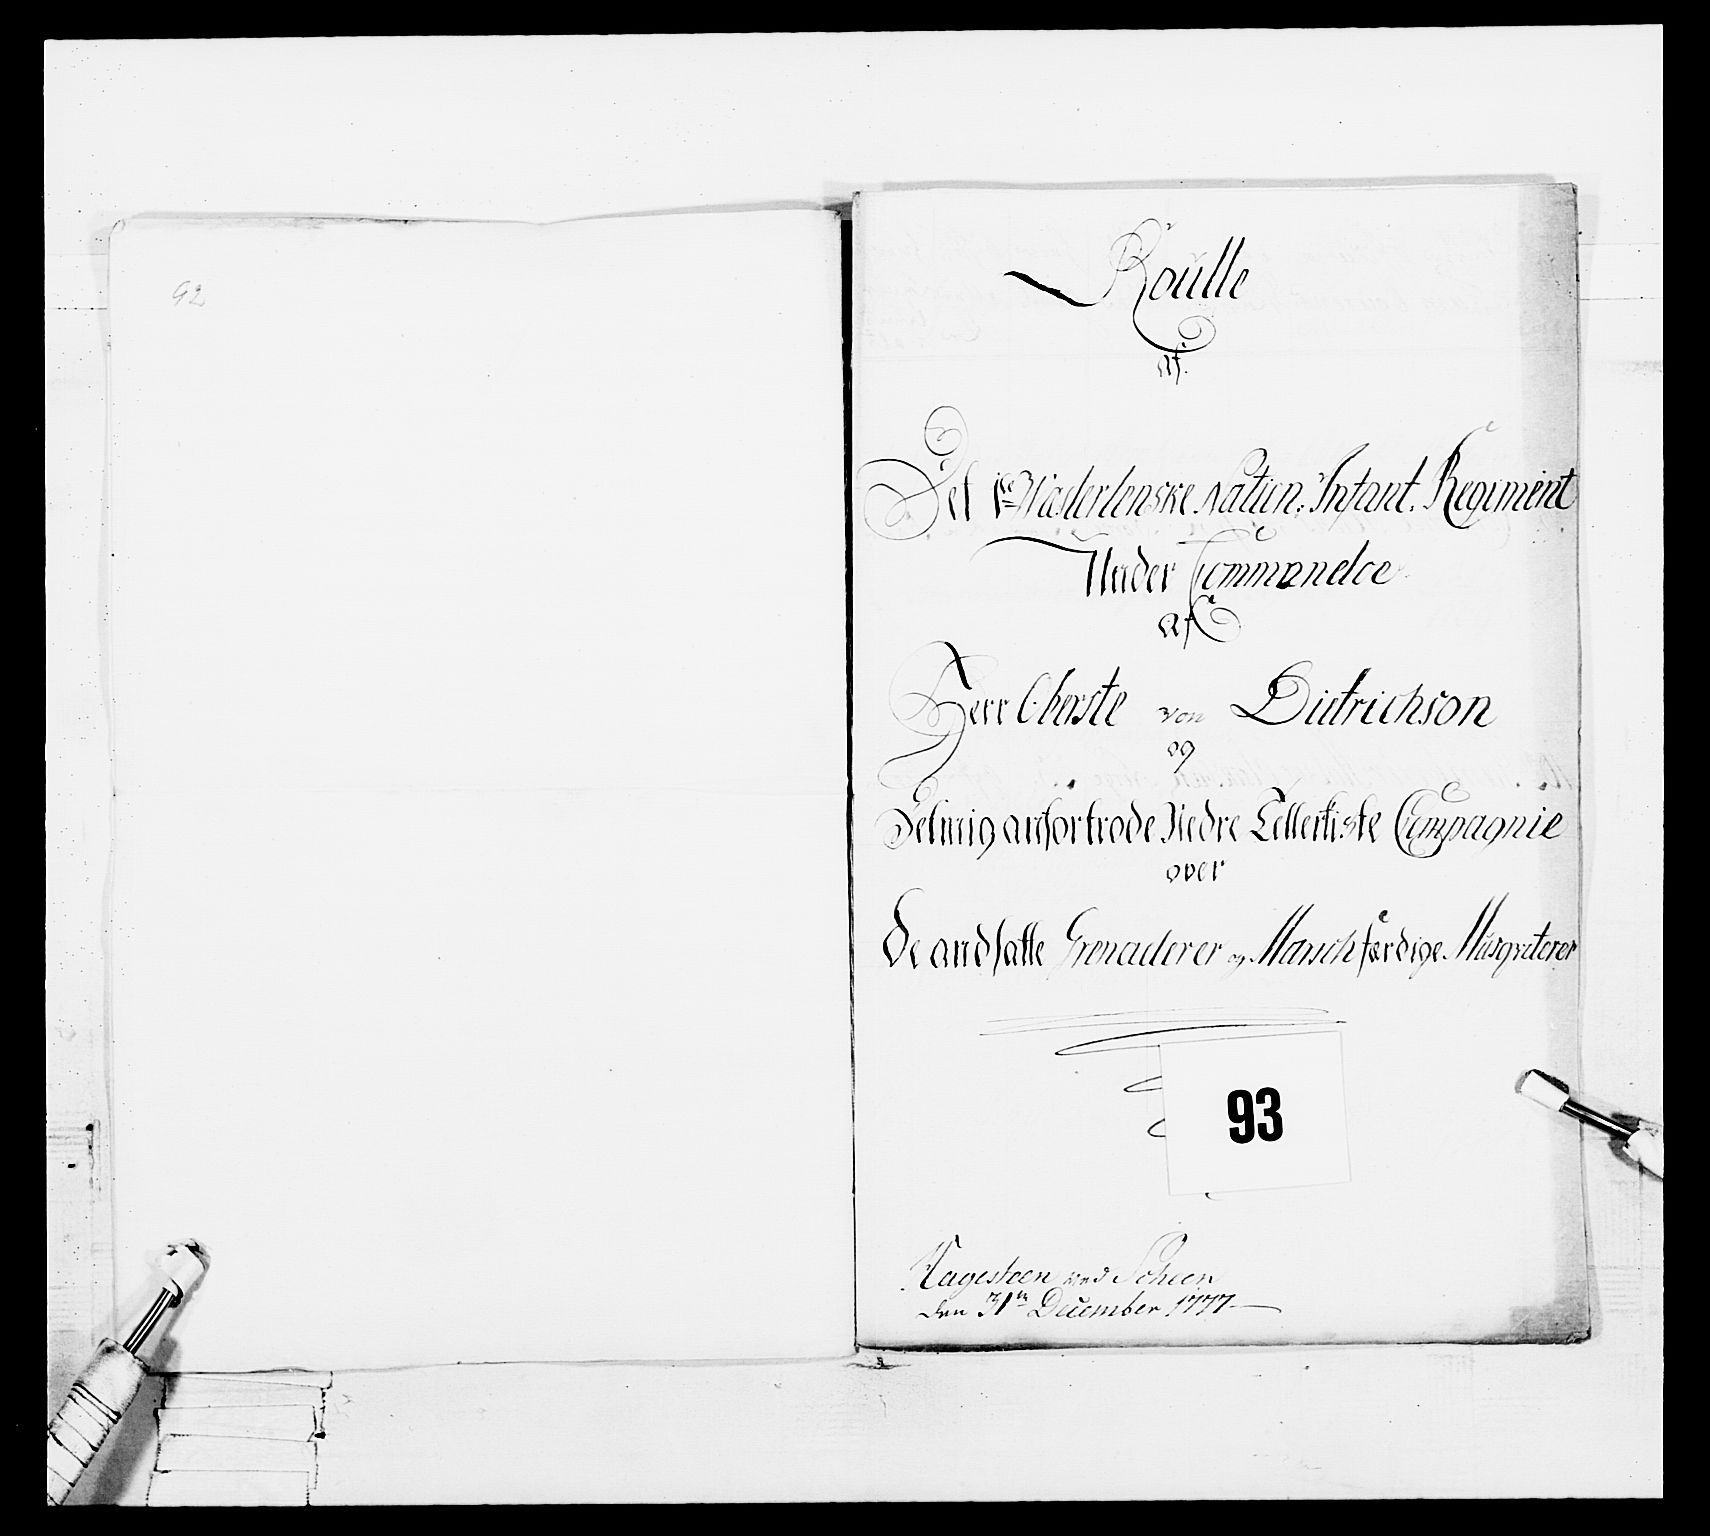 92
Roulle
af.
Det 1ste Westerlenske Nation: Infant. Regiment
Under Commandoe
af
Herr Oberste von Dietrichson
og
Det mig anfortrode Nedre Tellerkiste Compagnie
over
De andsatte Grenaderer og Marschfærdige Musqveterer
93
Kagesteen ved Scheen
den 31te December 1777